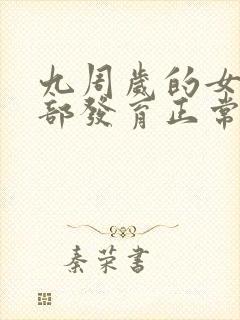 九周歲的女
部發育正常
秦荣書